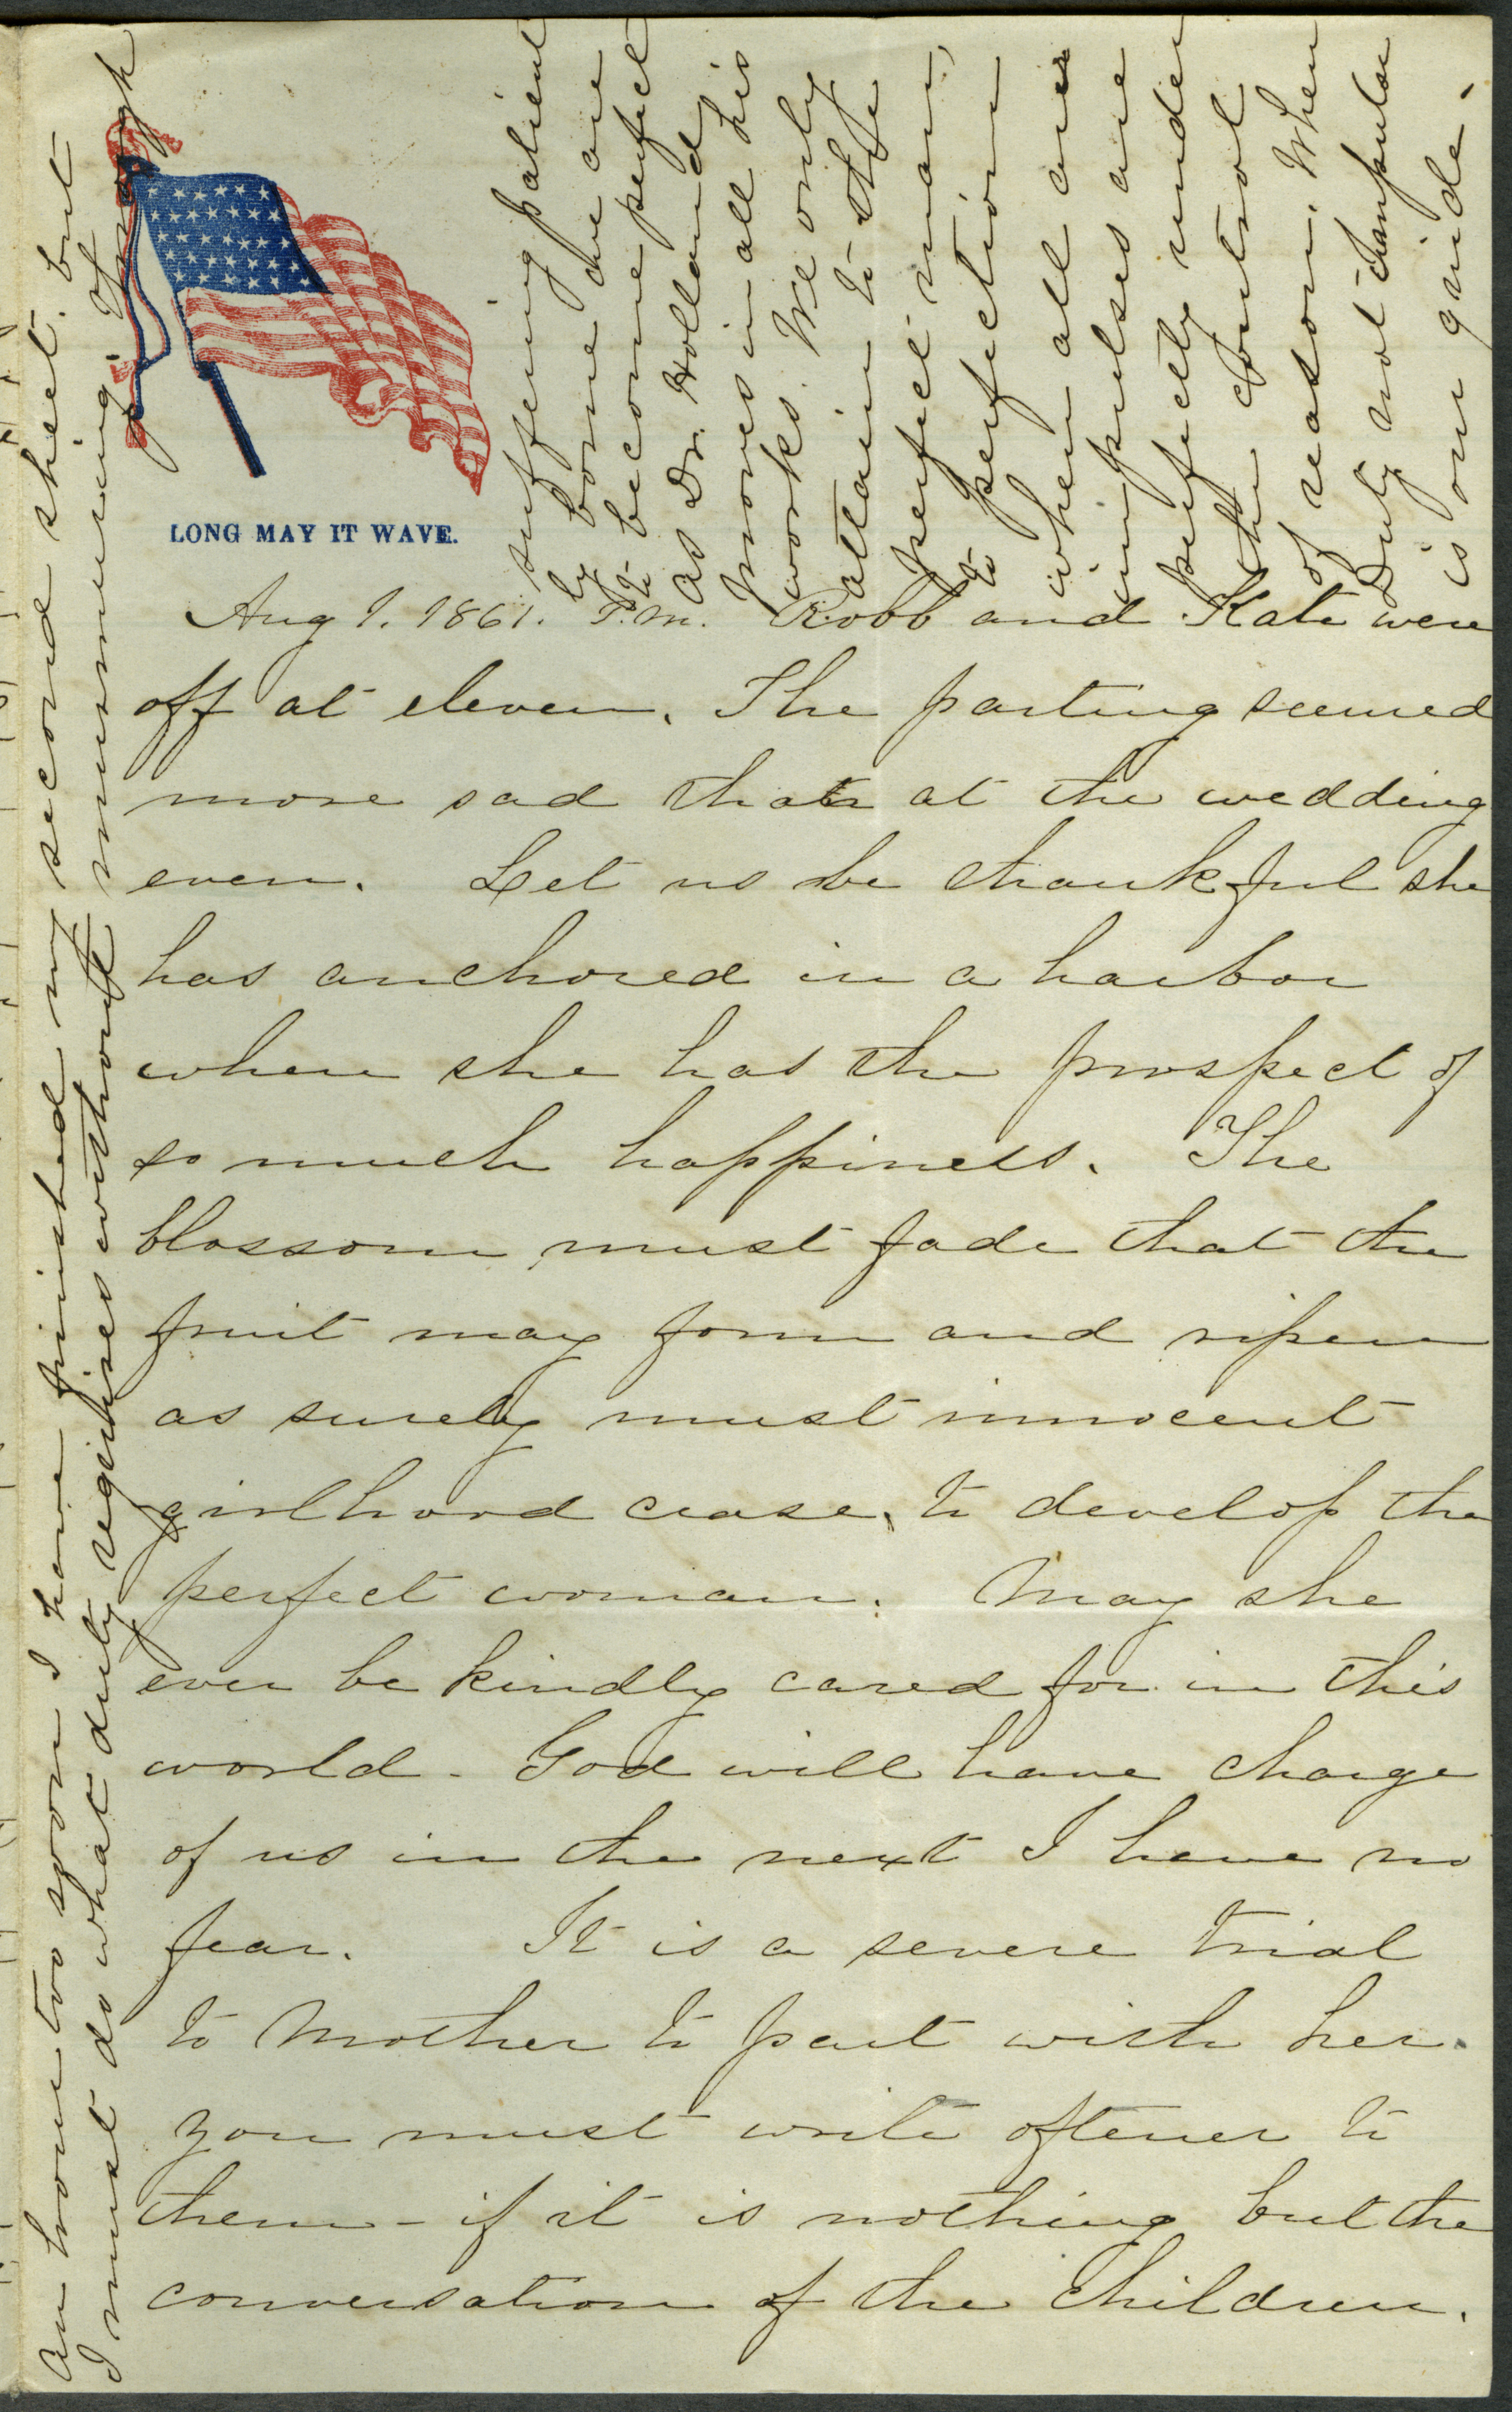 LONG MAY IT WAVE.
Aug 1. 1861. P.M. Robb and Kate were
off at eleven. The parting seemed
more sad than at the wedding
even. Let us be thankful she
has anchored in a harbor
where she has the prospect of
so much happiness. The
blossom must fade that the
fruit may form and ripen
as surely must innocent
girlhood cease, to develop the
perfect woman. May she
ever be kindly cared for in this
world - God will have charge
of us in the next I have no
fear. It is a severe trial
to Mother to part with her.
You must write oftener to
them - if it is nothing but the
conversation of the children.
An hour too soon I have finished my second sheet. but
I must do what duty requires without murmuring. Through
suffering patient
ly borne we are
to become perfect
as Dr. Holland
proves in all his
works. We only
attain to the
perfect man,
to perfection
when all our
impulses are
perfectly under
the control
of reason. When
Duty not
is our guide.